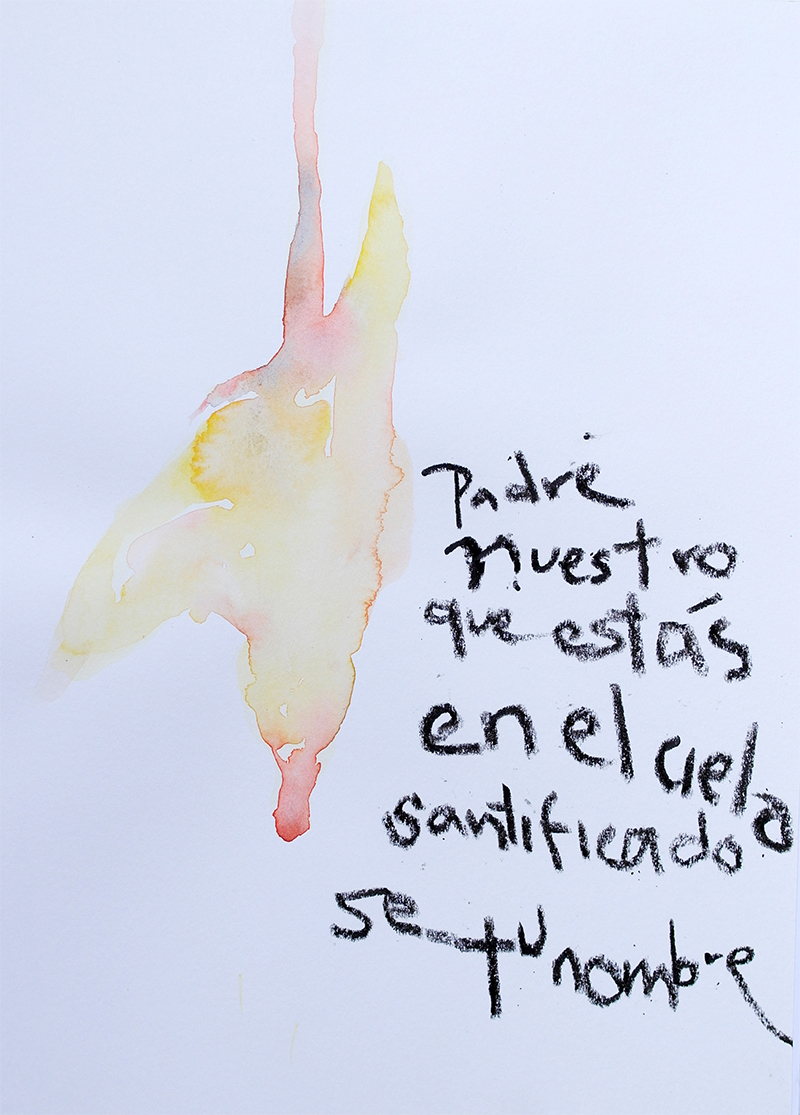 Padre
nuestro
que estás
en el cielo
santificado
se tu nombre